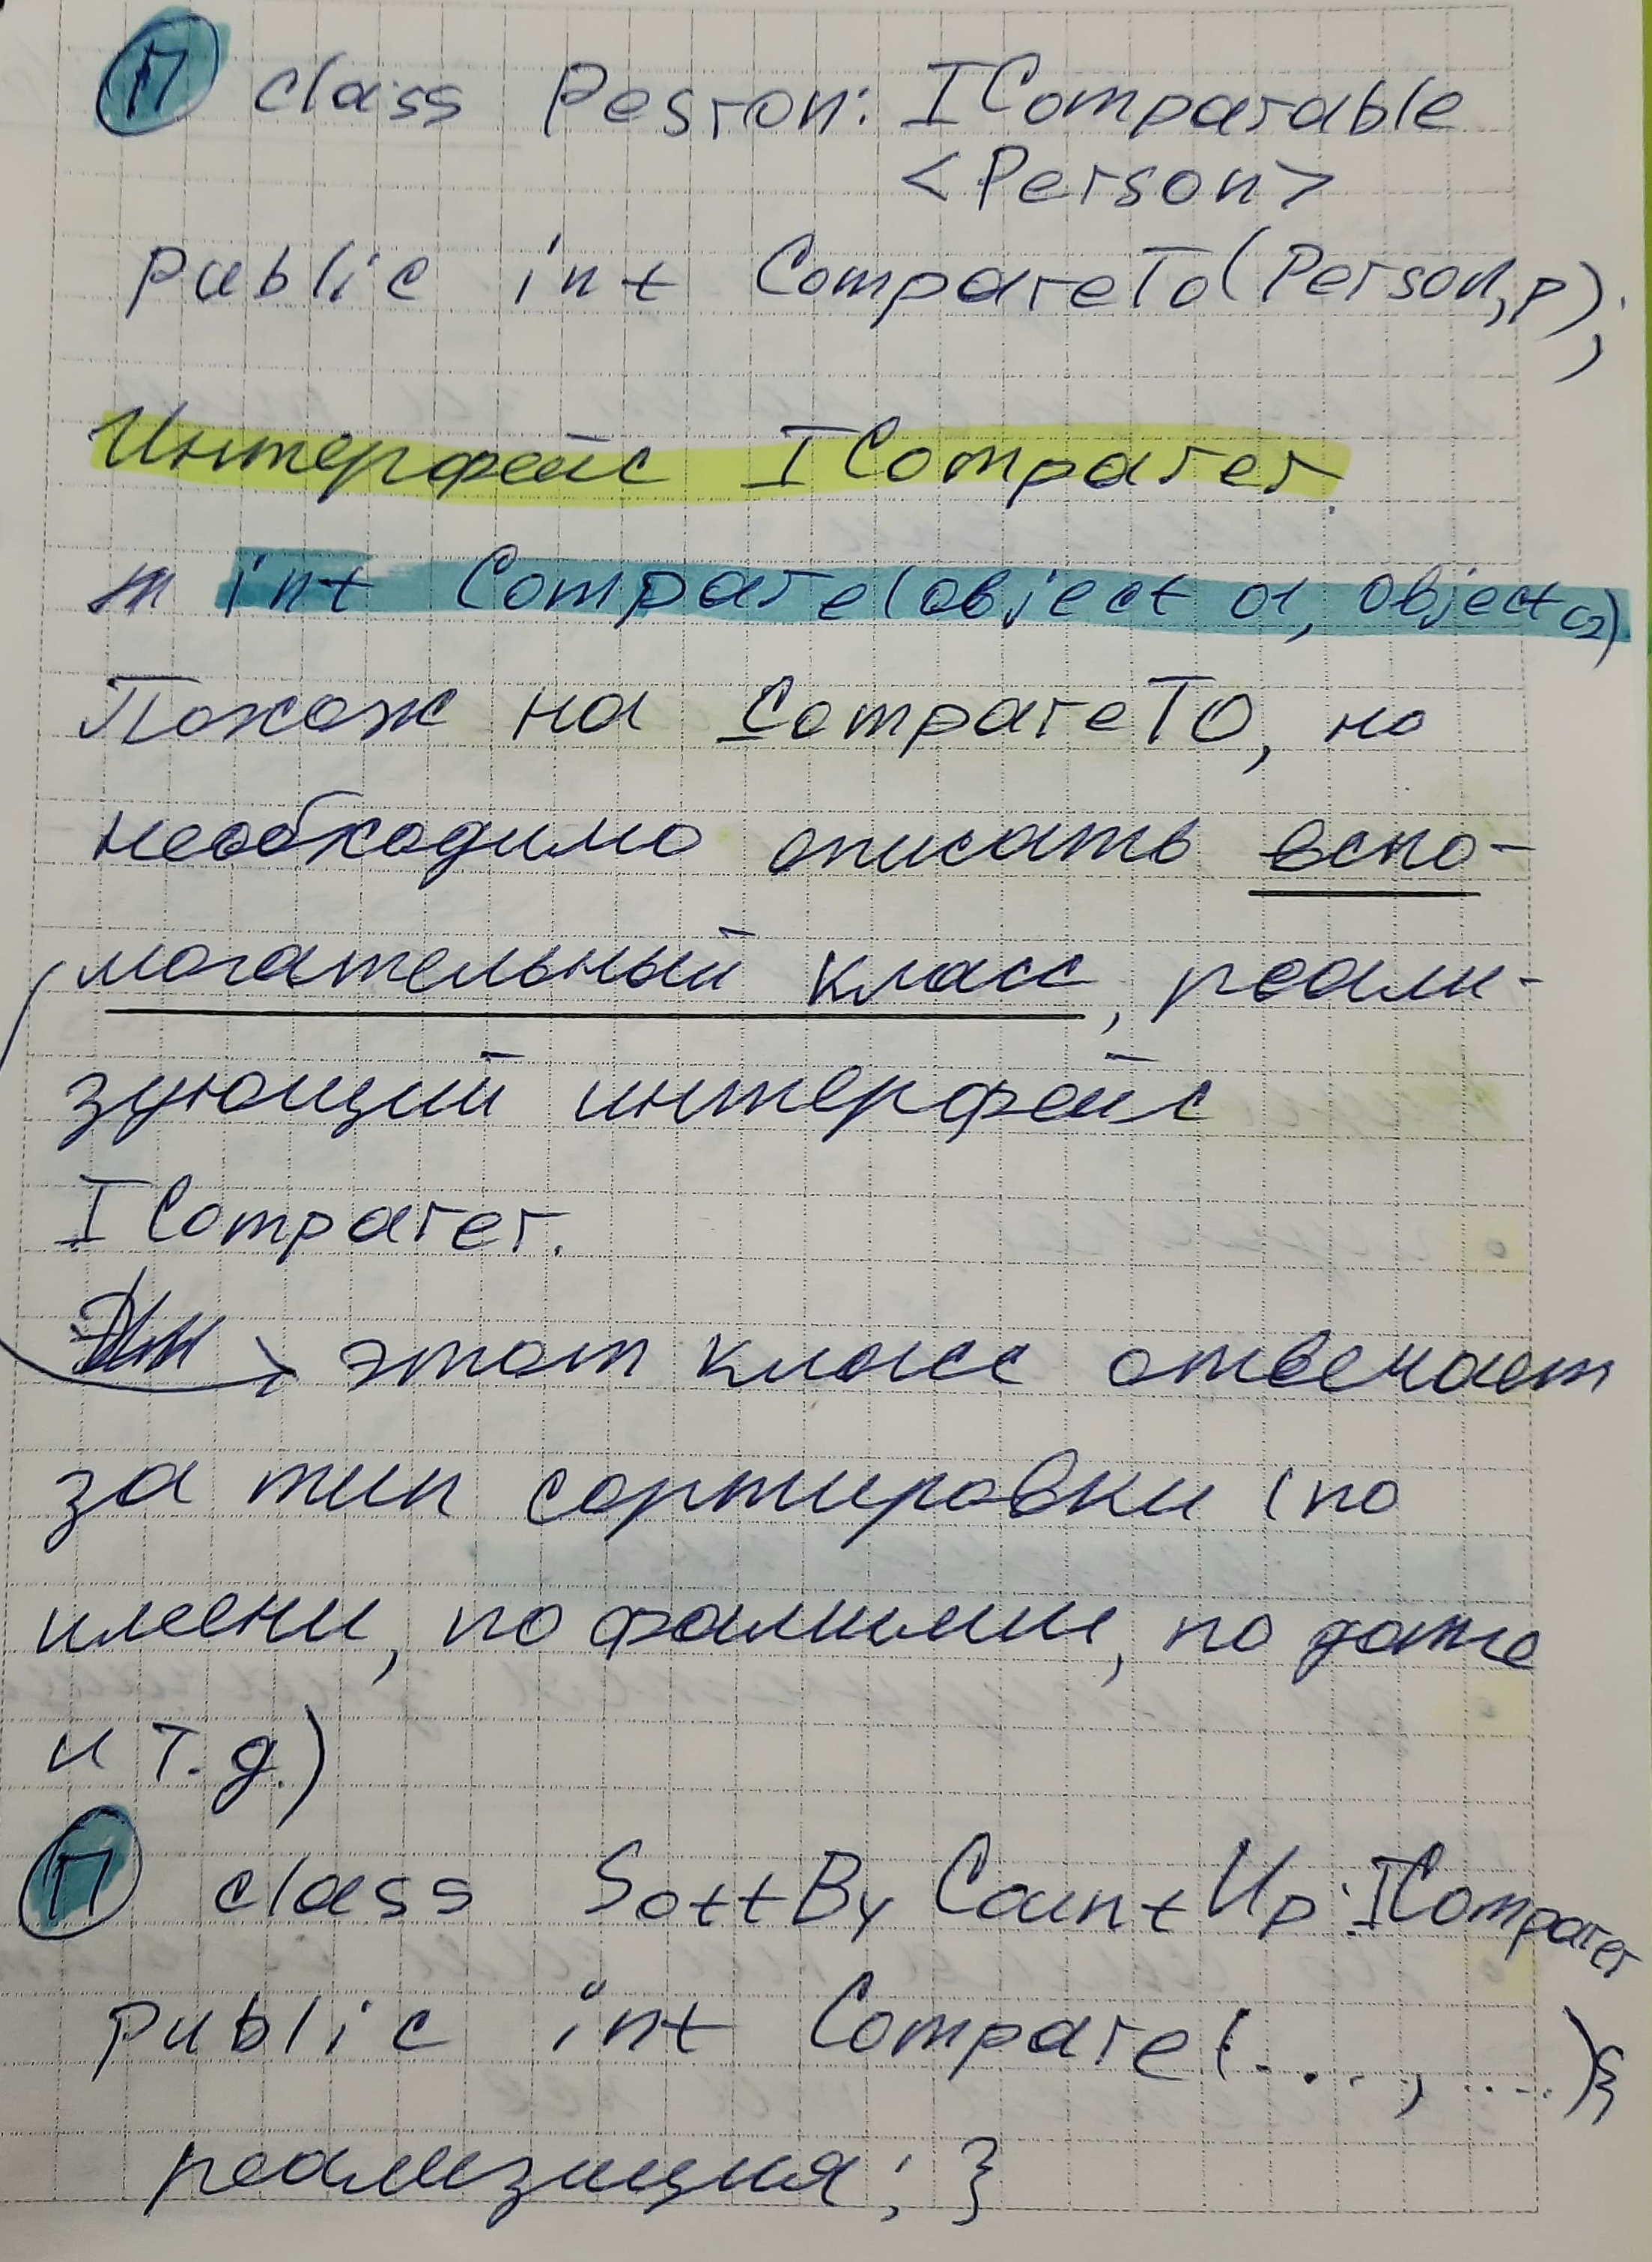 П class Pesron: IComparable
<Person>
public int CompareTo(Person,p);
Интерфейс IComparer.
int Compare(object o1, object o2)
Похож на CompareTo, но
необходимо описать вспо-
могательный класс, реали-
зующий интерфейс
IComparer.
этот класс отвечает
за тип сортировки (по
имени, по фамилии, по дате
и т.д.)
П class SortByCountUp:IComparer
public int Compare(...,....){
реализиция; }